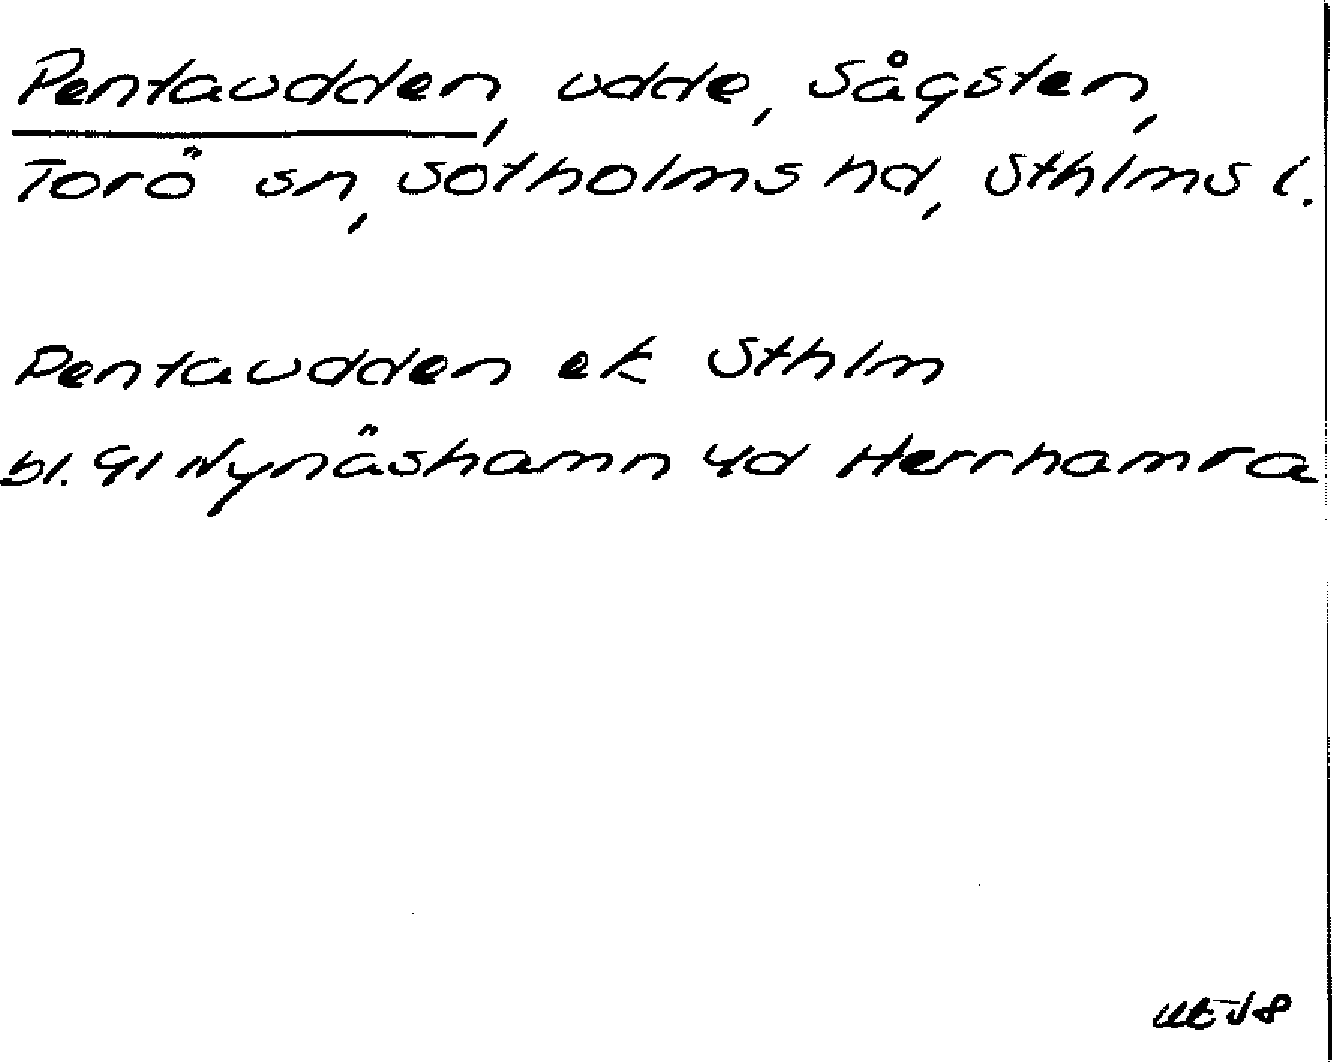 Pentaudden, udde, Sågsten,
Torö sn, Sotholms hd, Sthlms l.
Pentaudden ek Sthlm
bl. 91 Nynäshamn 4d Herrhamra